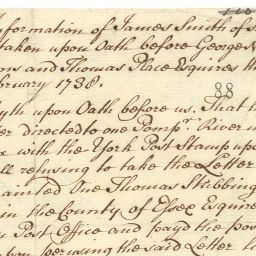 nformation of James Smith of
taken upon Oath before George N
ons and Thomas Place Esquires th
bruary 1738.
88
yth upon Oath before us. That h
er directed to one Pomp.r River in
x with the York Post Stamp upo
ll refusing to take the Letter
ainted One Thomas Stubbing
in the County of Essex Esquire
Post Office and payd the pos
perusing the said Letter